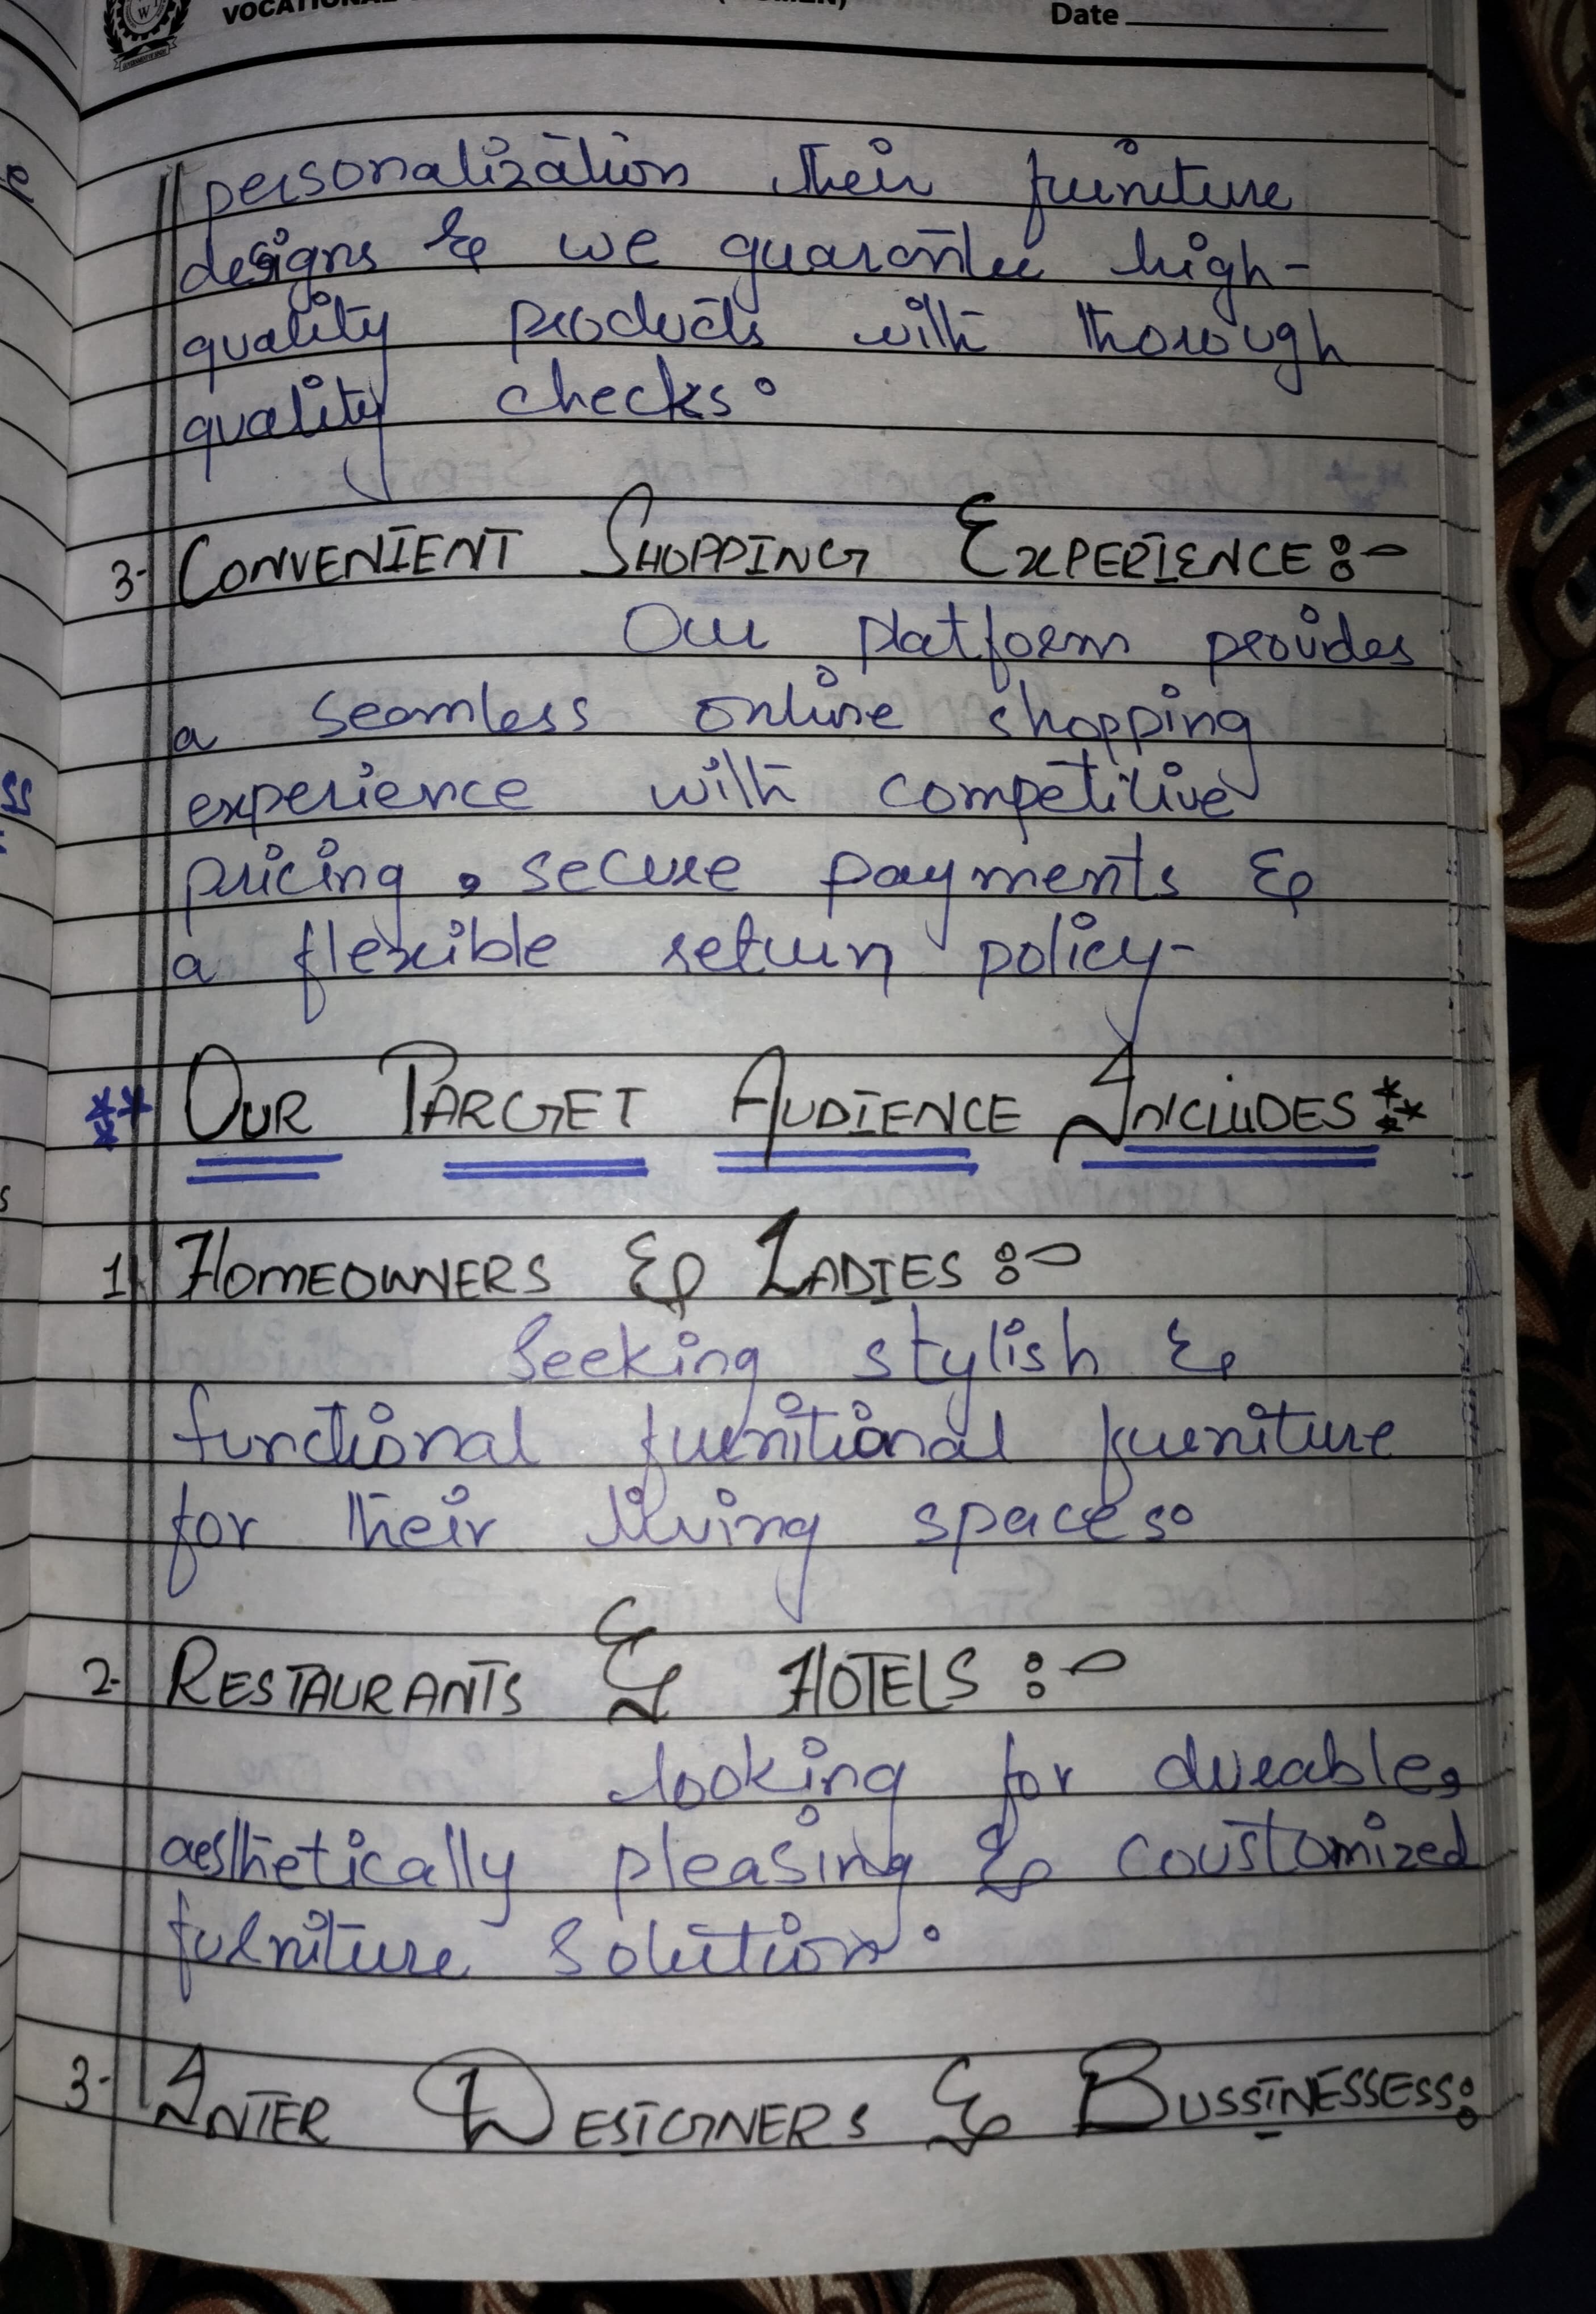 VOCATIONAL
Date
personalization their furniture
designs & we guarantee high-
quality products with thorough
quality checks.
3- CONVENIENT SHOPPING EXPERIENCE:-
Our platform provides
a seamless online shopping
experience with competitive
pricing, secure payments &
a flexible return policy-
** OUR TARGET AUDIENCE INCLUDES **
1. HOMEOWNERS & LADIES :-
Seeking stylish &
functional furnitional furniture
for their living spaces.
2- RESTAURANTS & HOTELS :-
looking for dureable,
aesthetically pleasing & coustomized
furniture solution.
3- INTER DESIGNERS & BUSSINESSESS: